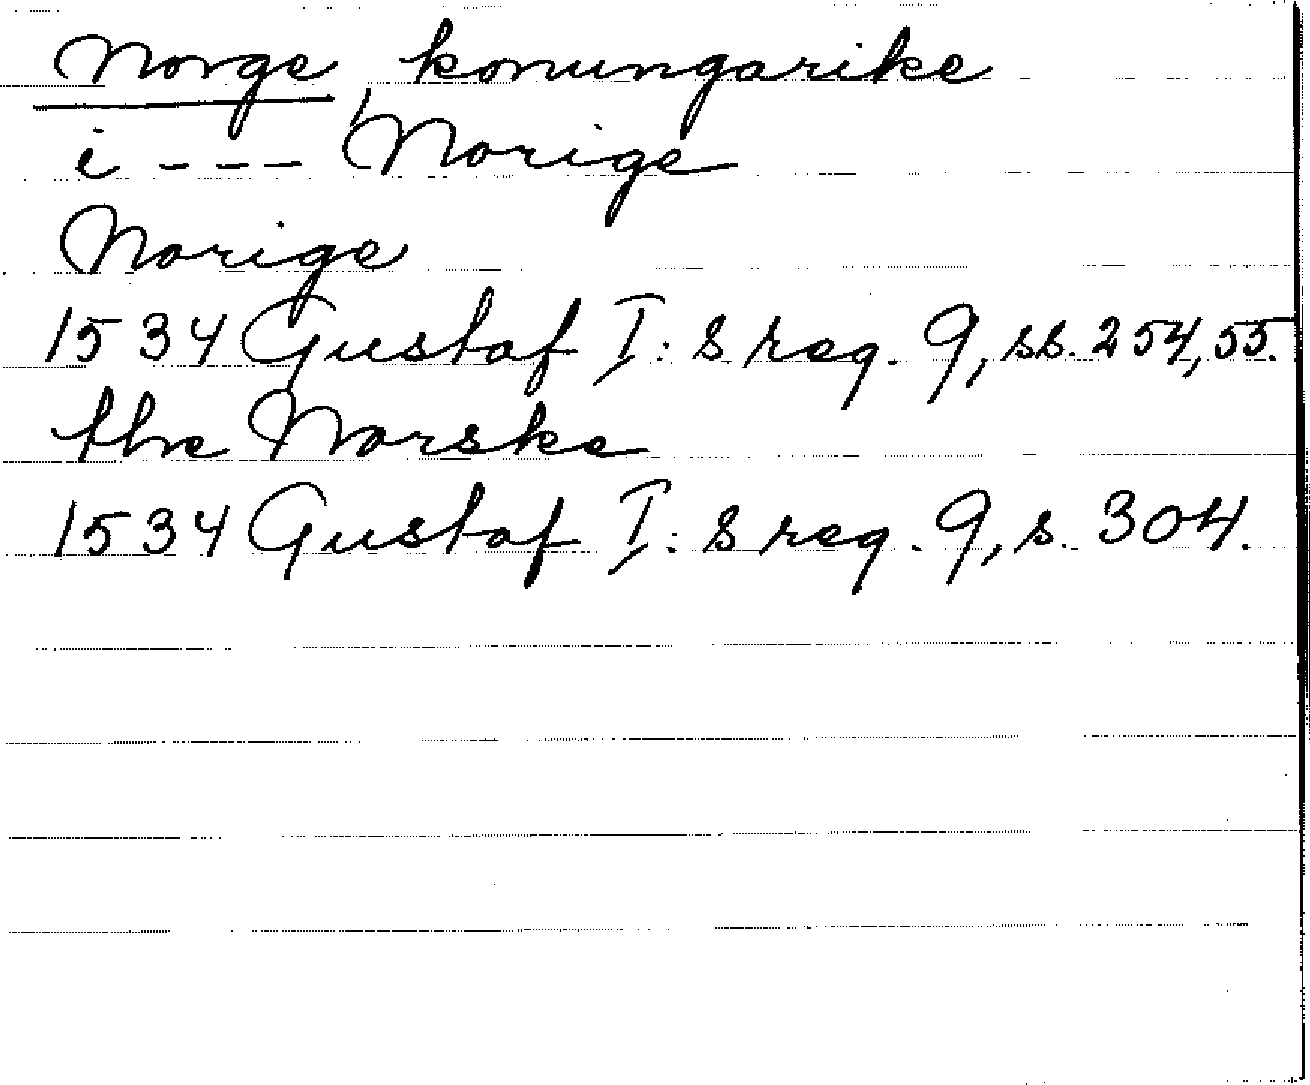 Norge, konungarike
i --- Norige
Norige
1534 Gustaf I:s reg. 9, ss. 254, 55.
the Norske
1534 Gustaf I:s reg. 9, s. 304.